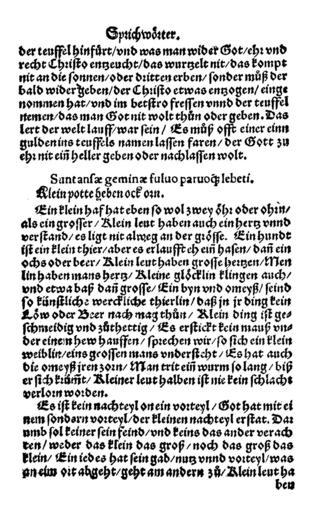 Sprichwörter.
der teuffel hinfürt/vnd was man wider Got/ehr vnd
recht Christo entzeucht/das wurtzelt nit/das kompt
nit an die sonnen/oder dritten erben/sonder müß der
bald widergeben/der Christo etwas entzogen/einge
nommen hat/vnd im betstro fressen vnnd der teuffel
nemen/das man Got nit wolt thün oder geben. Das
lert der welt lauff/war sein/ Es müß offt einer einn
gulden ins teuffels namen lassen faren/ der Gott zu
ehr nit ein heller geben oder nachlassen wolt.
Sunt ansæ geminæ fuluo paruoq; lebeti.
Klein potte heben ock orn.
Ein klein haf hat eben so wol zwey öhr oder ohrin/
als ein grosser/ Klein leut haben auch ein hertz vnnd
verstand/es ligt nit alweg an der grösse. Ein hundt
ist ein klein thier/aber es erlaufft eh ein hasen/ dañ ein
ochs oder beer/ Klein leut haben grosse hertzen/Men
lin haben mans hertz/ Kleine glöcklin klingen auch/
vnd etwa baß dañ grosse/ Ein byn vnd omeyß/ seind
so künstliche werckliche thierlin/ daß jn jr ding kein
Löw oder Beer nach mag thün/ Klein ding ist ge-
schmeidig vnd züthettig/ Es ersteckt kein mauß vn-
der einem hew hauffen/ sprechen wir/ so sich ein klein
weiblin/eins grossen mans vndersteht/ Es hat auch
die omeyß jren zorn/ Man trit ein wurm so lang/ biß
er sich krümt/ Kleiner leut halben ist nie kein schlacht
verlorn worden.
Es ist kein nachteyl on ein vorteyl/ Got hat mit ei
nem sondern vorteyl/ der kleinen nachteyl erstat. Dar
umb sol keiner sein feind/vnd keins das ander verach
ten/ weder das klein das groß/ noch das groß das
klein/ Ein iedes hat sein gab/nutz vnnd vorteyl/was
an eim ort abgeht/geht am andern zü/Klein leut ha
ben